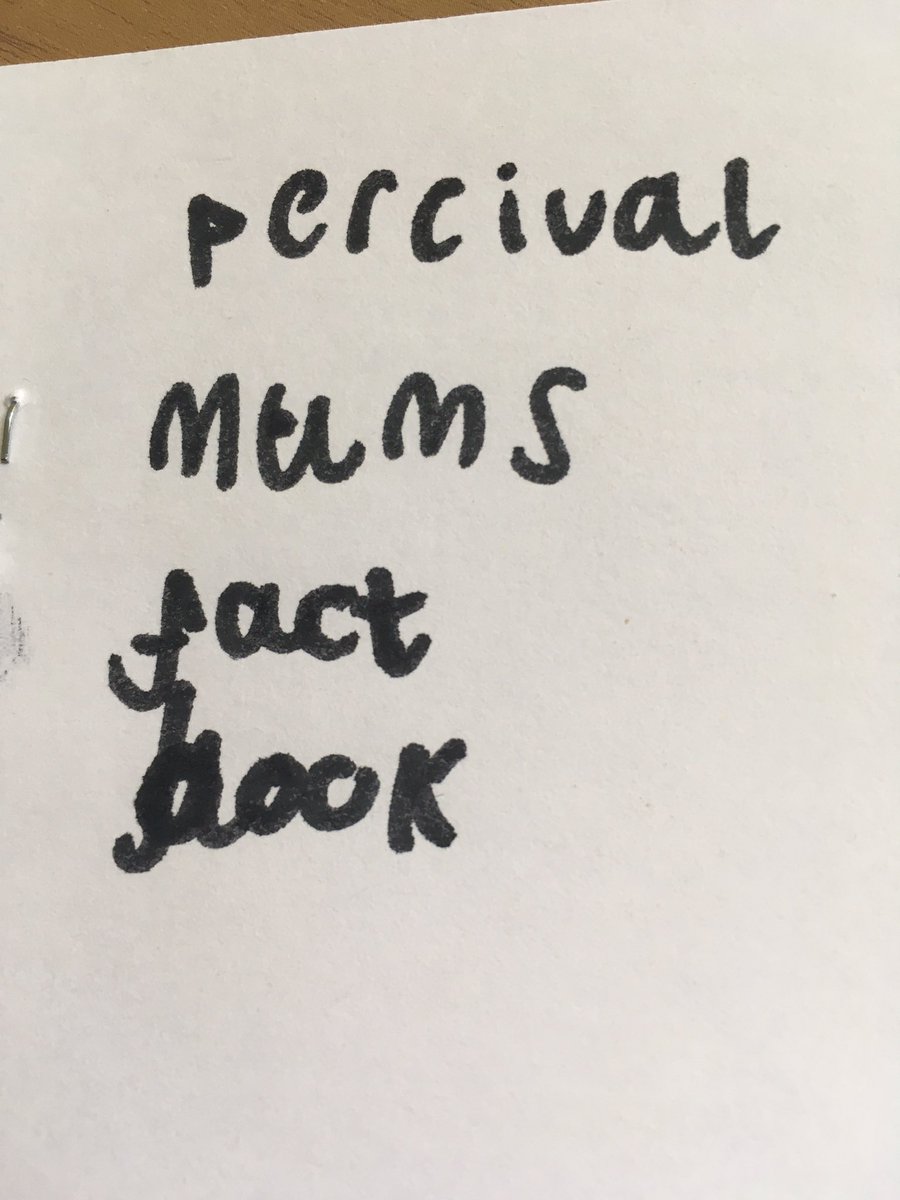 percival
Mums
fact
book